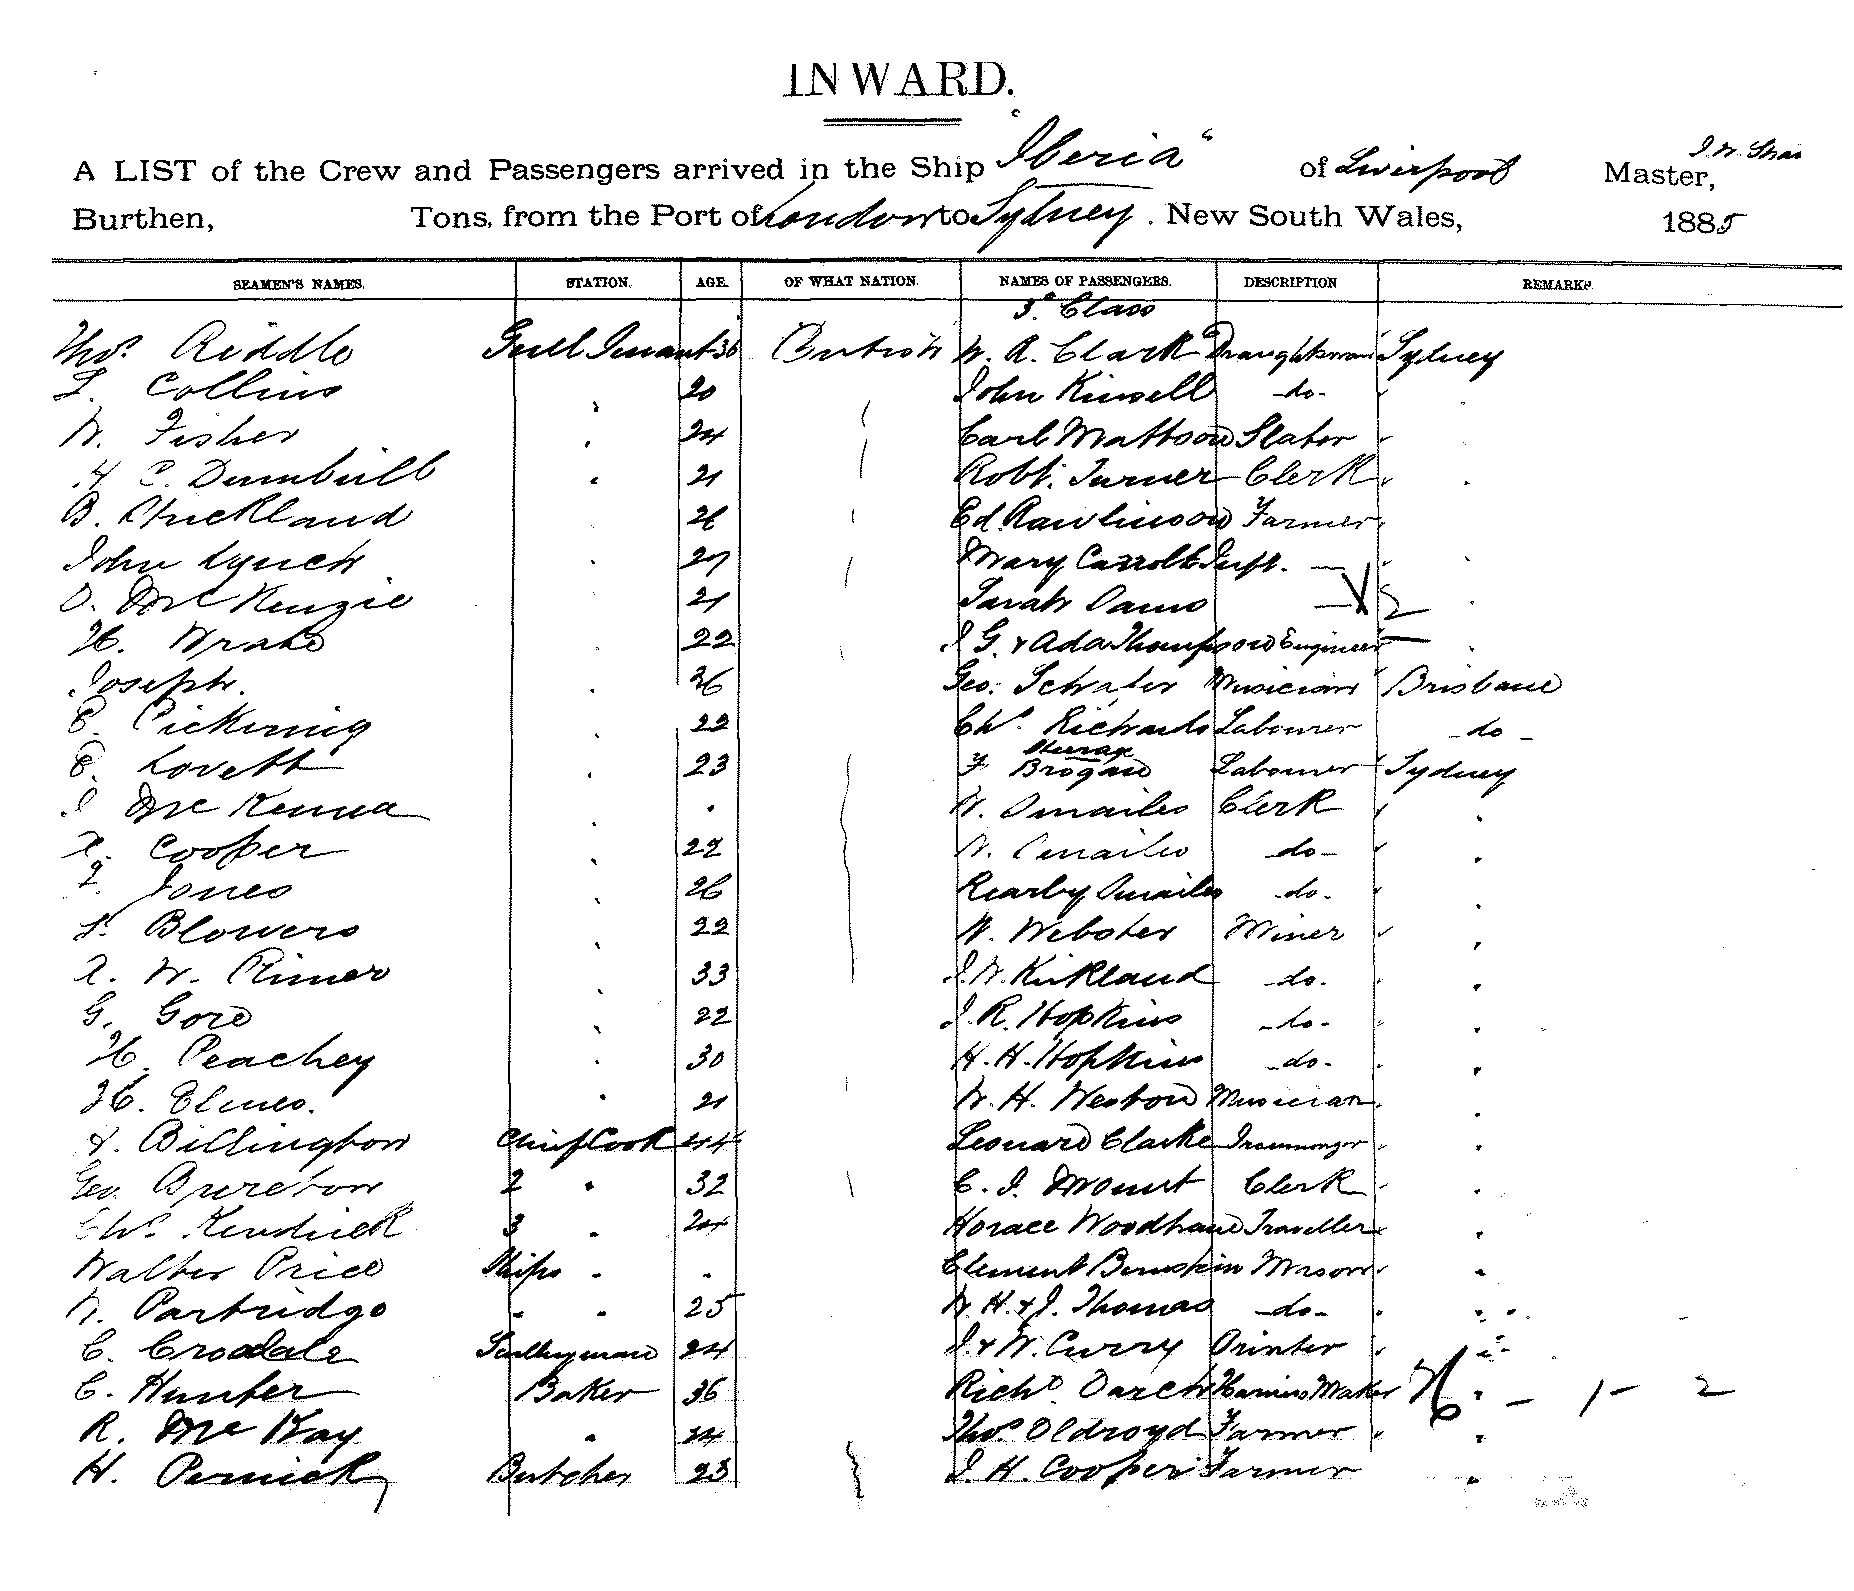 INWARD.
A LIST of the Crew and Passengers arrived in the Ship "Iberia" of Liverpool J. W. Shaw Master,
Burthen, Tons, from the Port of London to Sydney. New South Wales, 1885
SEAMEN'S NAMES. STATION. AGE. OF WHAT NATION. NAMES OF PASSENGERS. DESCRIPTION REMARKS
3d. Class
Thos. Riddle Genl Servant 36 British W. R. Clark Draughtsman Sydney
L. Collins " 20 John Kinsell do "
W. Fisher " 24 Carl Mattson Slater "
H C. Dumbill " 21 Robt. Turner Clerk "
B. Strickland " 26 Ed. Rawlinson Farmer "
John Lynch " 27 Mary Carroll "
D. McKenzie " 21 Sarah
H. Wrake " 22 J G. & Ada Thompson Engineer
Joseph. " 26 Geo. Musician Brisbane
E. Pickering " 22 Chs. Richards Labourer do
E. Lovett " 23 F Brogan Labourer Sydney
J McKenna " " W. Smailes Clerk "
A. Cooper " 22 W. Smailes do "
T. Jones " 26 Smailes do "
S. Blowers " 22 W. Webster Miner "
A. W. Rimer " 33 J. W. Kirkland do "
G. Gore " 22 J. R. Hopkins do "
H. Peachey " 30 H. H. Hopkins do "
H. Elmes. " 21 W. H. Weston Musician "
Billington Chief Cook 44 Leonard Clarke Ironmonger "
Geo. Brereton 2 " 32 C. J. Mount Clerk "
Chs. Kendrick 3 " 24 Horace Traveller "
Walter Price Ships " " Clement Mason "
W. Partridge " " 25 W. H. & J. Thomas do "
C. Croxdale Sculleryman 24 J & W. Curry Printer "
C. Hunter Baker 36 Richd. Darch Harness Maker " - 1 - 2
R. McKay " 24 Thos. Oldroyd Farmer "
H. Butcher 23 J. H. Cooper Farmer "